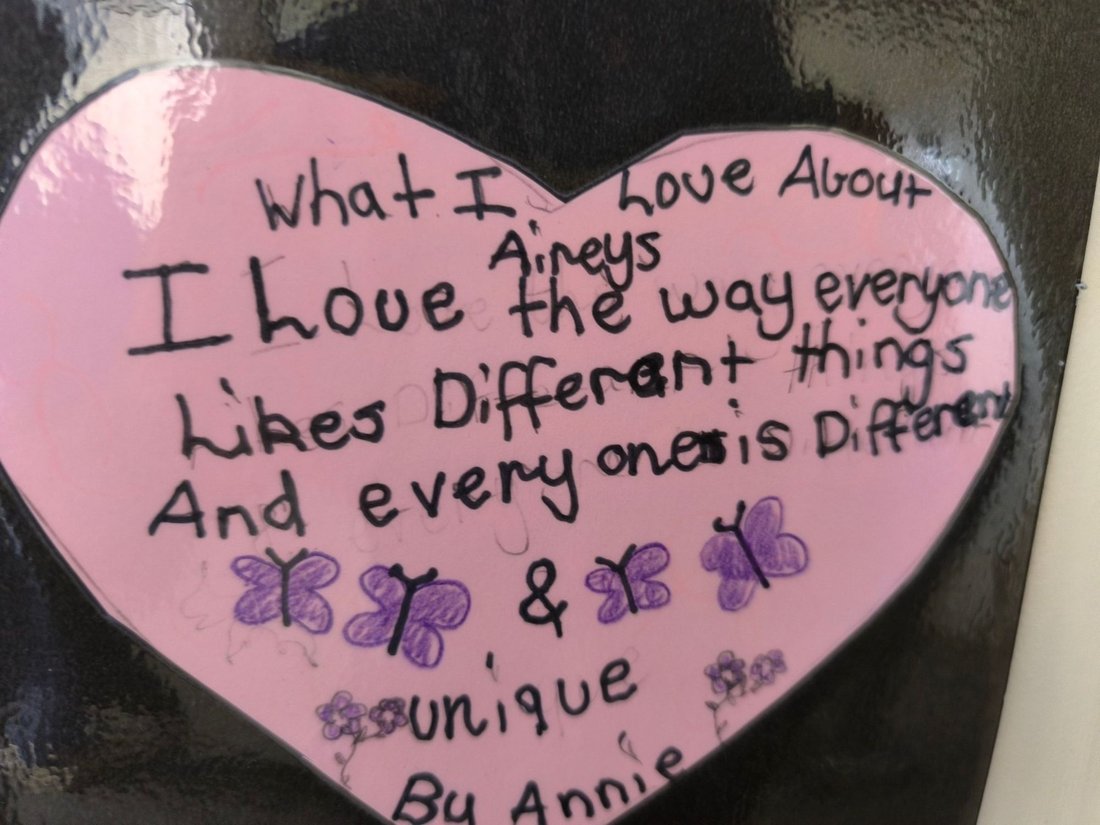 What I Love About
Aireys
I Love the way everyone
Likes Different things
And every one is Different
&
unique
By Annie